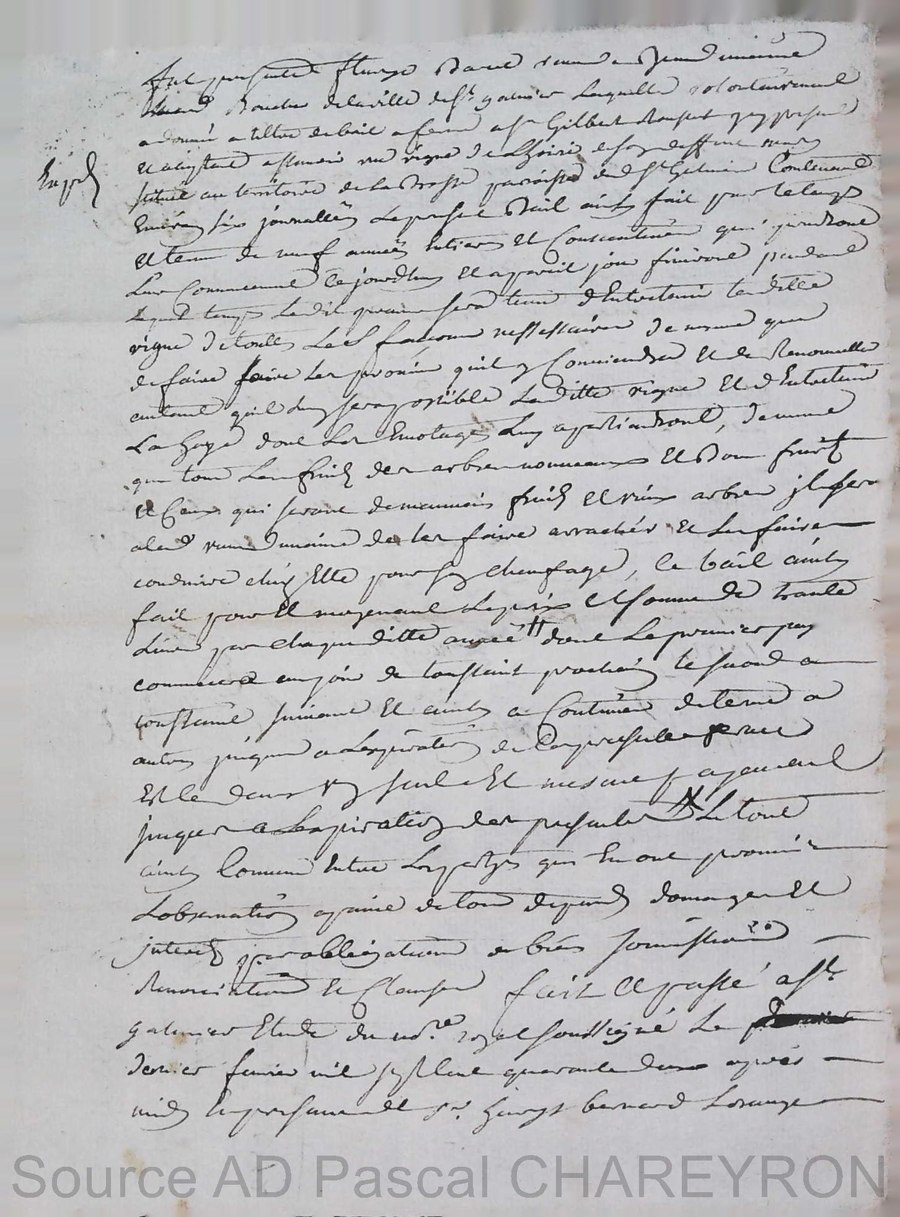 fut presente
de la ville de St galmier Laquelle volontairement
a donné a tiltre de bail a ferme a Sr Gilbert present
Exped
et acceptant assavoir une vigne de
situé au territoire de la Brosse paroisse de St Galmier Contenant
Environ six journallés Le present Bail ainsy fait pour le temps
et terme de neuf années entieres et Consecutives qui prendront
Leur Commencement ce jourdhuy et a pareil jour finiront pendant
lequel temps Ledit preneur sera tenu d'Entretenir laditte
vigne de toutes Les façons nessessaires de meme que
de faire faire Les provins qu'il y Conviendra et de Renouveller
autant qu'il luy sera possible Laditte vigne Et d'Entretenir
La haye dont Les Emotages Luy apartiendront, de meme
que tous Les fruits des arbres nouveaux et Bon fruit
et Ceux qui seront de mauvais fruits et vieux arbres il sera
de les faire arracher et Les faire
conduire chez Elle pour son chauffage, le bail ainsy
fait pour et moyenant Le prix et somme de trante
Livres par chaque ditte année dont Le premier pay
commencera au jour de toussaint prochain le second a
toussaint suivant Et ainsy a Continuer de terme a
autre jusques a Lexpiration de
Et le dans un seul Et mesme payement
jusques a Lexpiration des presentes Le tout
ainsy Convenu Entre Les partyes qui En ont promis
Lobservation a paine de tous depends domages Et
interets par obligations de biens soumissions
Renonciations et Clauses fait et passé a St
galmier Etude du nore royal soussigné Le
dernier fevrier mil sept cent quarante deux après
midy En presence de Sr bernard
Source AD Pascal CHAREYRON